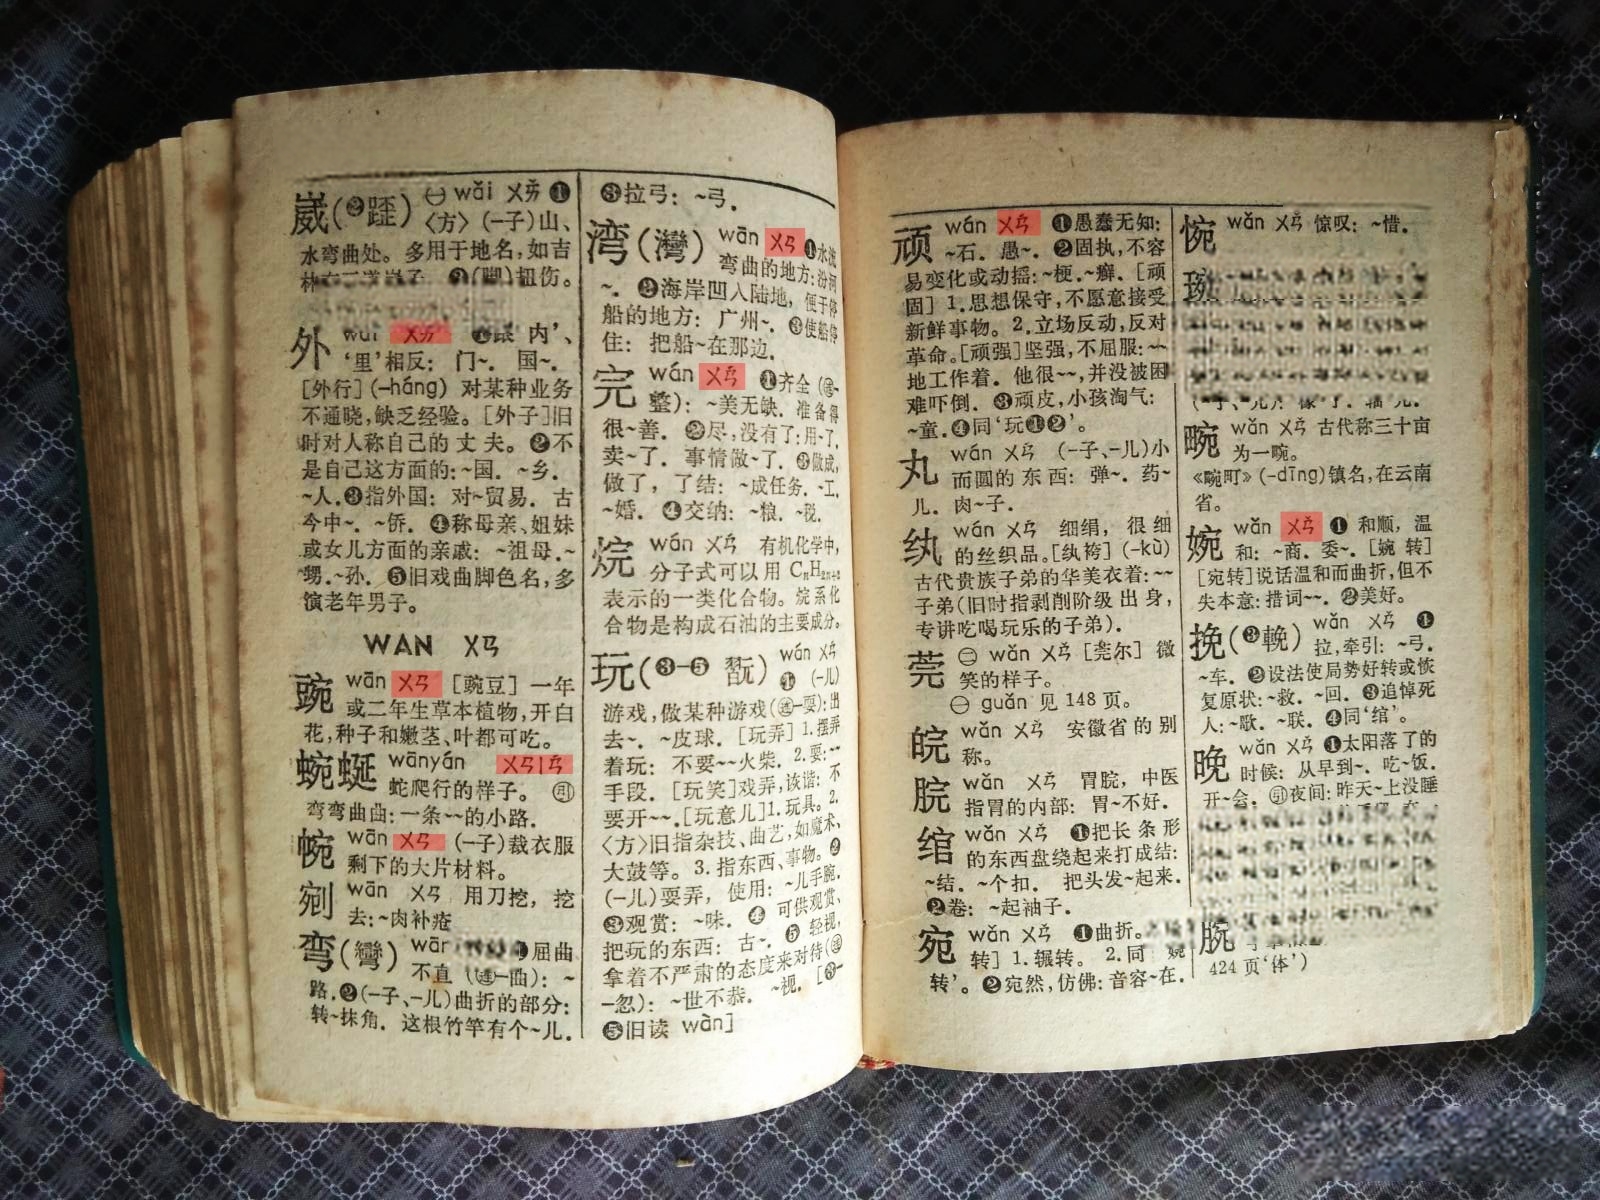 崴(❷踒) ㊀ wǎi ㄨㄞˇ ❶
〈方〉(—子)山、
水弯曲处。多用于地名,如吉
❷(脚)扭伤。
外 wài ㄨㄞˋ ❶跟‘内’、
‘里’相反: 门~. 国~.
[外行](-háng) 对某种业务
不通晓,缺乏经验。[外子]旧
时对人称自己的丈夫。❷不
是自己这方面的:~国. ~乡.
~人.❸指外国: 对~贸易. 古
今中~. ~侨. ❹称母亲、姐妹
或女儿方面的亲戚: ~祖母.~
甥.~孙. ❺旧戏曲脚色名,多
演老年男子。
WAN ㄨㄢ
豌 wān ㄨㄢ [豌豆] 一年
或二年生草本植物,开白
花,种子和嫩茎、叶都可吃。
蜿蜒 wānyán ㄨㄢㄧㄢˊ
蛇爬行的样子。㊞
弯弯曲曲:一条~~的小路.
帵 wān ㄨㄢ (—子)裁衣服
剩下的大片材料。
剜 wān ㄨㄢ 用刀挖,挖
去:~肉补疮
弯(彎) wān ❶屈曲
不直 (㊣—曲): ~
路.❷(—子、—儿)曲折的部分:
转~抹角. 这根竹竿有个~儿.
❸拉弓: ~弓.
湾(灣) wān ㄨㄢ ❶水流
弯曲的地方:汾河
~. ❷海岸凹入陆地, 便于停
船的地方: 广州~. ❸使船停
住: 把船~在那边.
完 wán ㄨㄢˊ ❶齐全 (㊣—
整): ~美无缺. 准备得
很~善. ❷尽,没有了:用~了.
卖~了. 事情做~了. ❸做成,
做了, 了结: ~成任务. ~工.
~婚. ❹交纳: ~粮. ~税.
烷 wán ㄨㄢˊ 有机化学中,
分子式可以用 CnH2n+2
表示的一类化合物。烷系化
合物是构成石油的主要成分。
玩(❸—❺ 翫) wán ㄨㄢˊ
❶ (—儿)
游戏,做某种游戏(㊣—耍):出
去~. ~皮球. [玩弄] 1.摆弄
着玩: 不要~~火柴. 2.耍:~~
手段. [玩笑]戏弄,诙谐: 不
要开~~. [玩意儿]1.玩具。2.
〈方〉旧指杂技、曲艺,如魔术、
大鼓等。3.指东西、事物。❷
(—儿)耍弄, 使用: ~儿手腕.
❸观赏: ~味. ❹ 可供观赏、
把玩的东西: 古~. ❺ 轻视,
拿着不严肃的态度来对待(㊣
—忽): ~世不恭. ~视. [❸—
❺旧读 wàn]
顽 wán ㄨㄢˊ ❶愚蠢无知:
~石. 愚~. ❷固执,不容
易变化或动摇:~梗.~癣. [顽
固] 1.思想保守,不愿意接受
新鲜事物。2.立场反动,反对
革命。[顽强]坚强,不屈服:~~
地工作着. 他很~~,并没被困
难吓倒. ❸顽皮,小孩淘气:
~童.❹同‘玩❶❷’。
丸 wán ㄨㄢˊ (—子、—儿)小
而圆的东西: 弹~. 药~
儿. 肉~子.
纨 wán ㄨㄢˊ 细绢, 很细
的丝织品。[纨袴] (-kù)
古代贵族子弟的华美衣着:~~
子弟(旧时指剥削阶级出身,
专讲吃喝玩乐的子弟).
莞 ㊁ wǎn ㄨㄢˇ [莞尔] 微
笑的样子。
㊀ guǎn 见 148 页。
皖 wǎn ㄨㄢˇ 安徽省的别
称。
脘 wǎn ㄨㄢˇ 胃脘, 中医
指胃的内部: 胃~不好.
绾 wǎn ㄨㄢˇ ❶把长条形
的东西盘绕起来打成结:
~结. ~个扣. 把头发~起来.
❷卷: ~起袖子.
宛 wǎn ㄨㄢˇ ❶曲折。
转] 1.辗转。 2.同 婉
转’。❷宛然,仿佛:音容~在.
惋 wǎn ㄨㄢˇ 惊叹: ~惜.
琬
畹 wǎn ㄨㄢˇ 古代称三十亩
为一畹。
《畹町》(-dīng)镇名,在云南
省。
婉 wǎn ㄨㄢˇ ❶ 和顺, 温
和: ~商. 委~. [婉转]
[宛转]说话温和而曲折,但不
失本意:措词~~. ❷美好。
挽(❸輓) wǎn ㄨㄢˇ ❶
拉,牵引: ~弓.
~车. ❷设法使局势好转或恢
复原状: ~救. ~回. ❸追悼死
人: ~歌. ~联. ❹同‘绾’。
晚 wǎn ㄨㄢˇ ❶太阳落了的
时候: 从早到~. 吃~饭.
开~会. ㊞夜间:昨天~上没睡
脘
424 页‘体’)